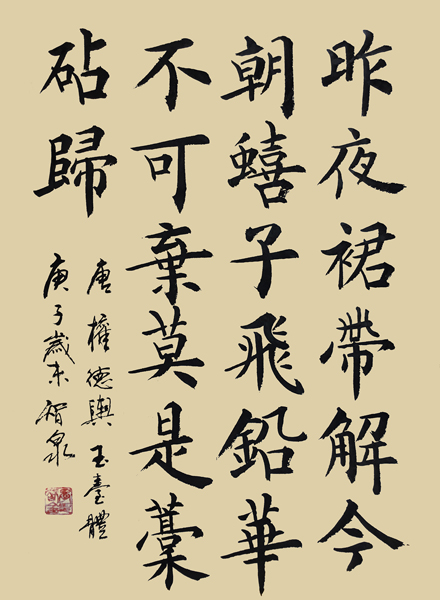 昨夜裙帶解今
朝蟢子飛鉛華
不可棄莫是藁
砧歸
唐權德輿玉臺體
庚子歲末智泉